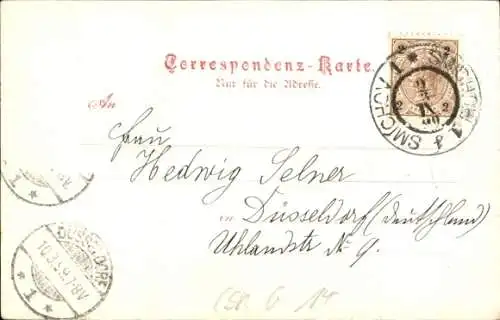 Correspondenz-Karte.
Nur für die Adresse.
An
Frau
Hedwig Selner
in Düsseldorf (Deutschland)
Uhlandstr № 9.
SMICHOW 1
DÜSSELDORF
* 1 *